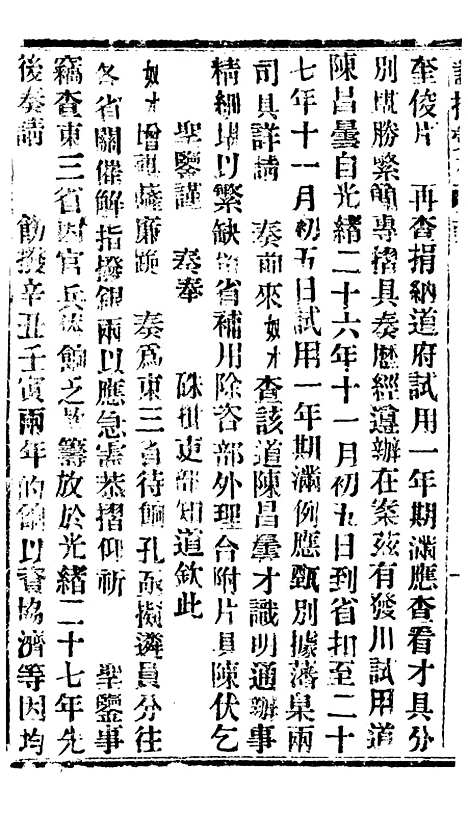 奎俊片　再查捐納道府試用一年期滿應查看才具分
別堪勝繁簡專摺具奏歷經遵辦在案茲有發川試用道
陳昌曇自光緒二十六年十一月初五日到省扣至二十
七年十一月初五日試用一年期滿例應甄別據藩臬兩
司具詳請　奏前來奴才查該道陳昌曇才識明通辦事
精細堪以繁缺留省補用除咨部外理合附片具陳伏乞
聖鑒謹　奏奉　硃批吏部知道欽此
奴才增祺薩廉跪　奏為東三省待餉孔亟擬遴員分往
各省關催解指撥銀兩以應急需恭摺仰祈　聖鑒事
竊查東三省官兵俸餉之數籌放於光緒二十七年先
後奏請　飭撥辛丑壬寅兩年的餉以資協濟等因均